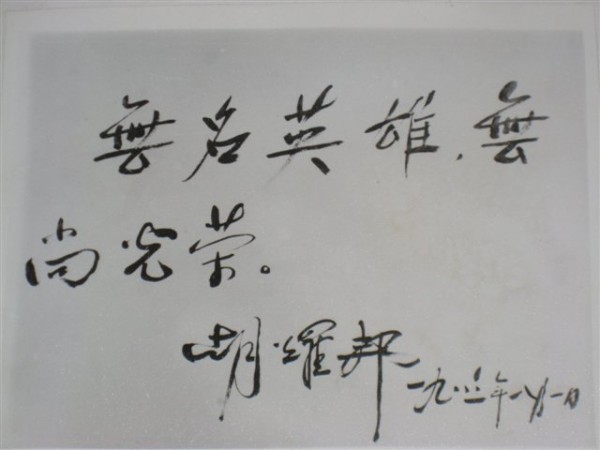 無名英雄，無
尚光荣。
胡耀邦 一九八年月一日